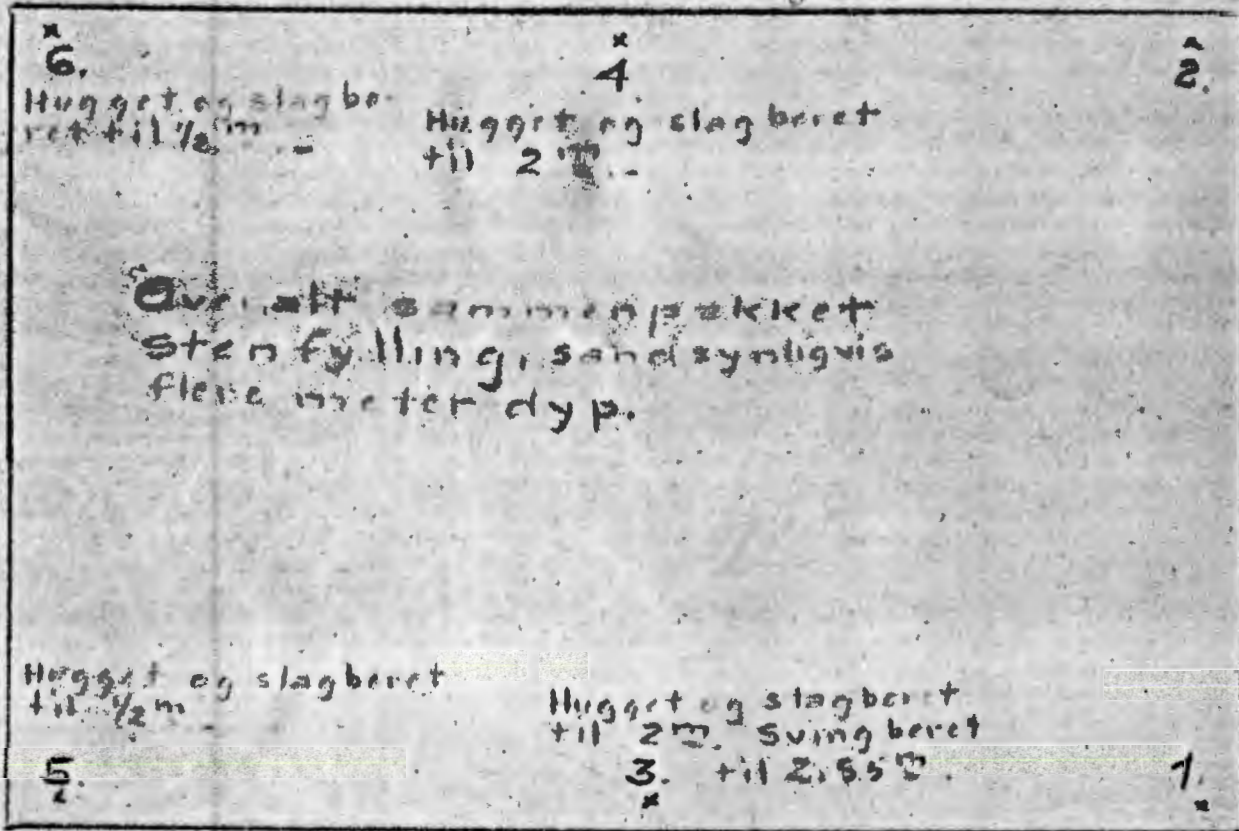 6.
4
2.
Hugget og slagbe-
ret til 1/2 m. -
Hugget og slagberet
til 2 m. -
Overalt sammenpakket
stenfylling, sandsynligvis
flere meter dyp.
Hugget og slagberet
til 1/2 m
Hugget og slagberet
til 2 m. Svingberet
5.
3. til 2,55 m.
1.